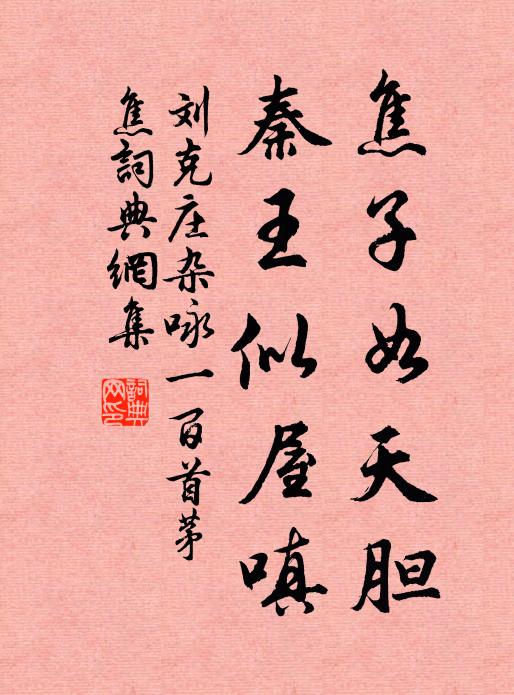 焦子如天胆
秦王似屋嗔
刘克庄杂咏一百首茅
焦詞典網集
詞典网印